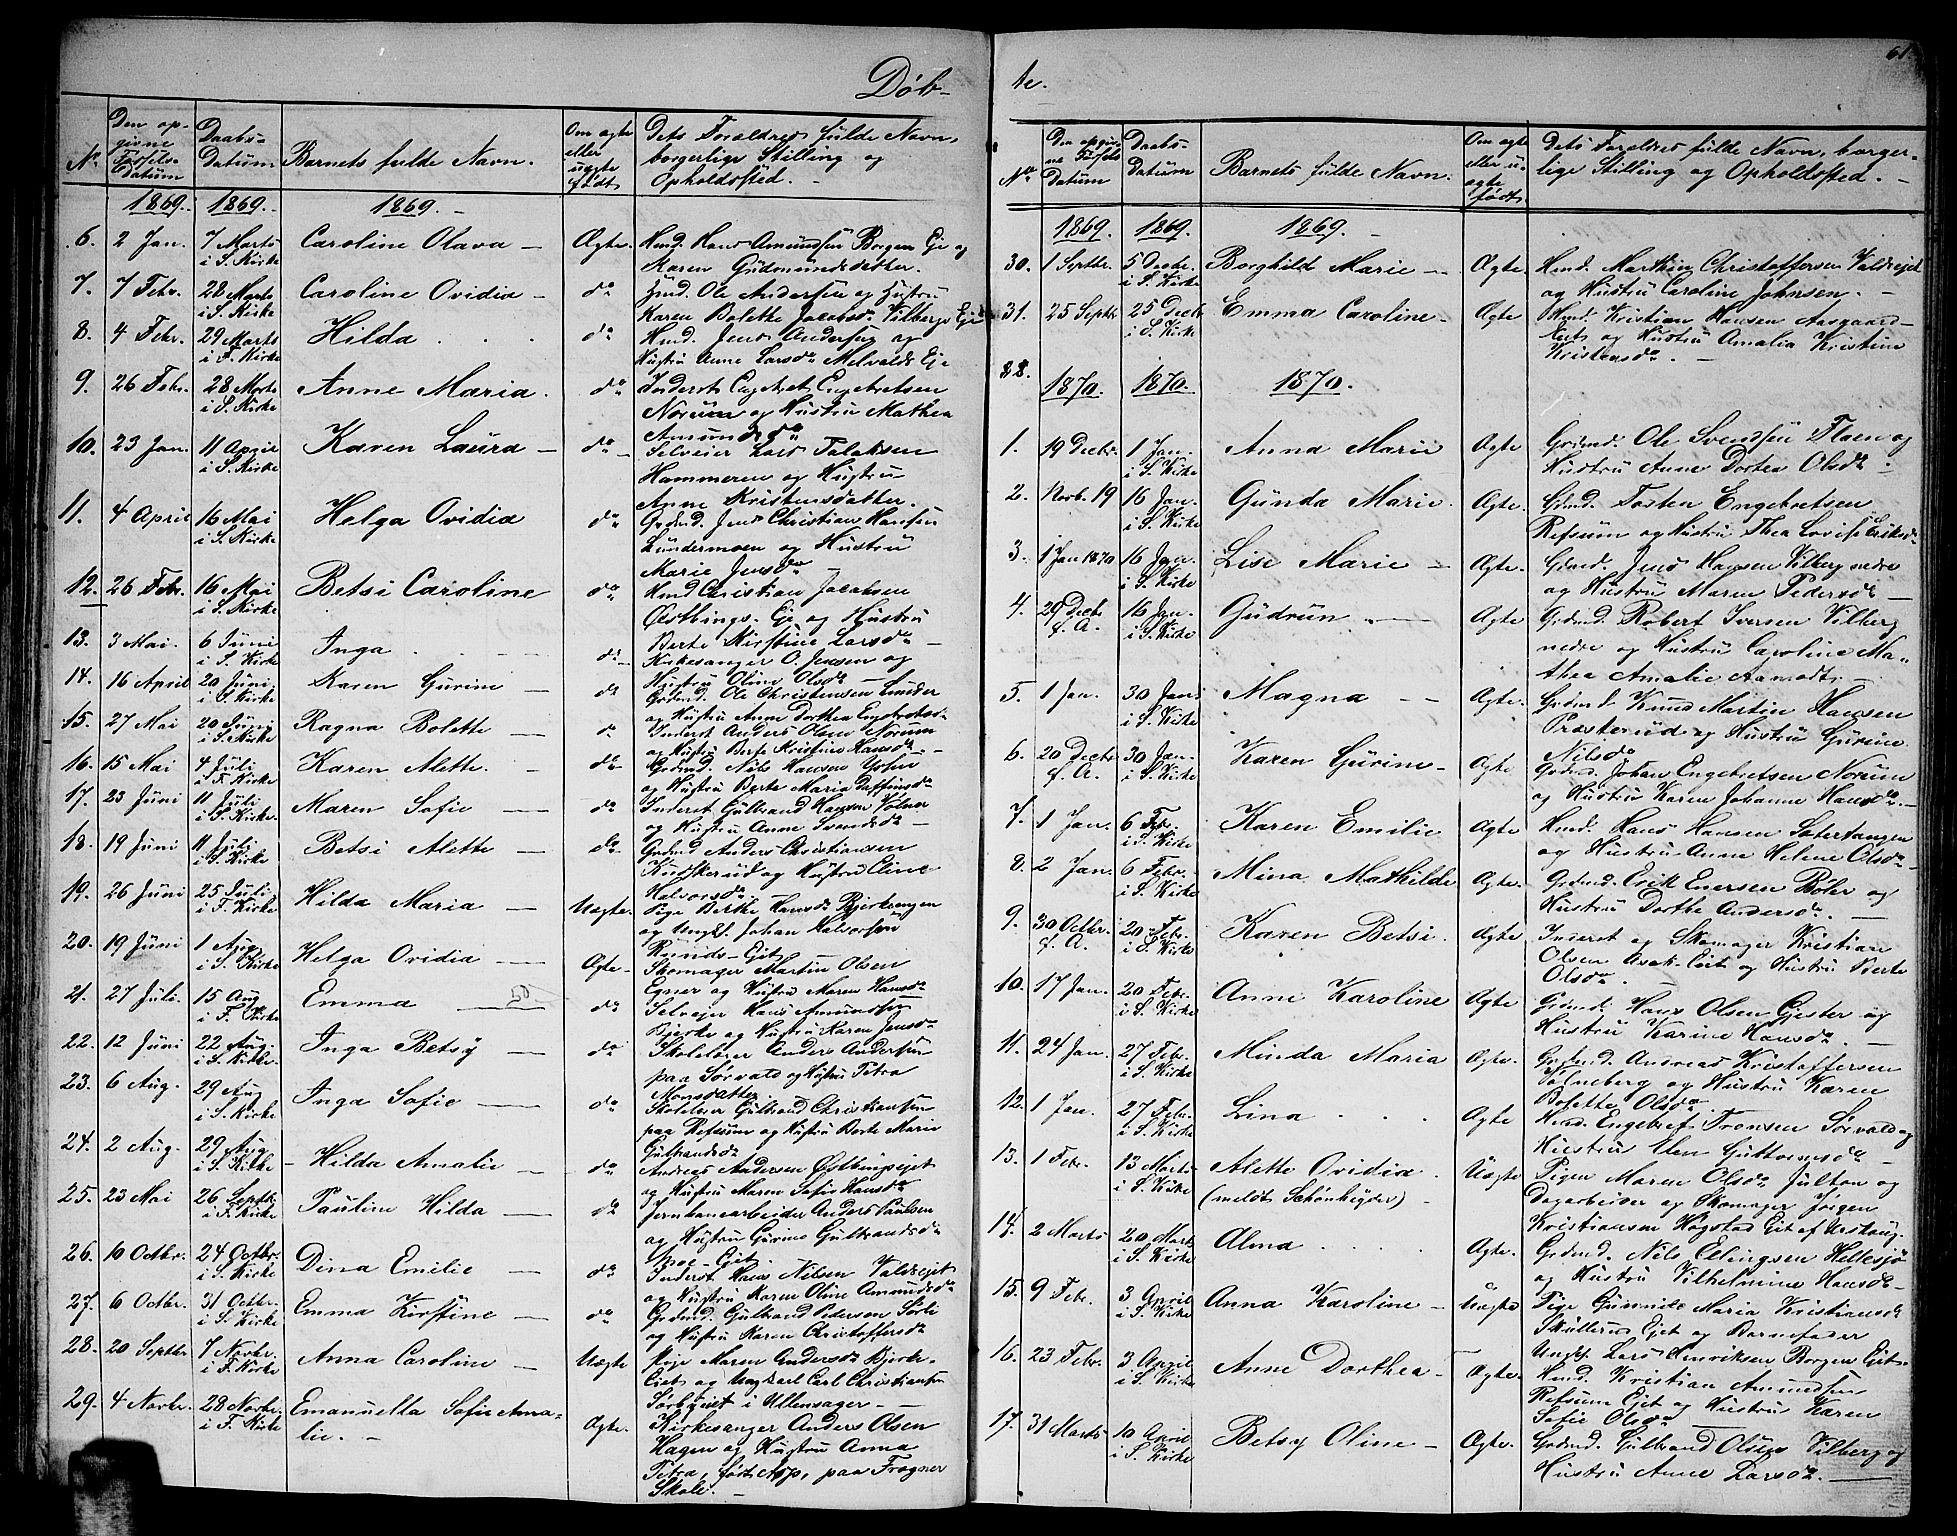 61.
Døb-
te.
No.
Den op-
givne
Fødsels-
datum
Daabs-
Datum
Barnets fulde Navn.
Om ægte
eller
uægte
født
Dets Forældres fulde Navn,
borgerlige Stilling og
Opholdssted. -
1869. 1869. 1869. -
6. 2 Jan. 7 Marts i S. Kirke Caroline Olava - Ægte. Huusmd. Hans Amundsen Borgens Eje og
Maren Gudmundsdatter.
7. 7 Febr. 28 Marts i S. Kirke Caroline Ovidia - do Ole Andersen og Hustru
Karen Bolette Jacobsdr. Vilbergs Eje
8. 4 Febr. 29 Marts i F. Kirke Hilda do Huusmd. Jens Andersen og
Hustru Anne Larsdr Melvalds Eje
9. 26 Febr. 28 Marts i S. Kirke Anne Maria. do Inderst Engebret Engebretsen
Norum og Hustru Mathea
Amundsdr
10. 23 Jan. 11 April i S. Kirke Karen Laura - do Selveier Lars Falaksen
Hammeren og Hustru
Anne Kristensdatter.
11. 4 April 16 Mai i S. Kirke Helga Ovidia do Grdmd. Jens Christian Hansen
Lundermoen og Hustru
Marie Jensdr
12. 26 Febr. 16 Mai i S. Kirke Betsi Caroline do Hmd Christian Jacobsen
Østbings Eje og Hustru
Berte Kirstine Larsdr
13. 3 Mai. 6 Juni i S. Kirke Inga do Kirkesanger O. Jensen og
Hustru Oline Olsdr -
14. 16 April 20 Juni i S. Kirke Karen Gurine - do Grdmd. Ole Christensen
og Hustru Anne Dorthea
15. 27 Mai 20 Juni i S. Kirke Ragna Bolette - do Inderst Anders Olsen Norum
og Hustru Berte Kristine Hansdr -
16. 15 Mai 4 Juli i F. Kirke Karen Alette. do Grdmd. Nils Hansen
og Hustru Berte Maria
17. 23 Juni 11 Juli i S. Kirke Maren Sofie - do Inderst Gulbrand Hansen
og Hustru Anne Svendsdr -
18. 19 Juni 11 Juli i S. Kirke Betsi Alette - do Grdmd Anders Christiansen
Kuskerud og Hustru Eline
Halvorsdr
19. 26 Juni 25 Juli i F. Kirke Hilda Maria - Uægte. Pige Berthe Hansdr Bjerkeengen
og Ungk. Johan Halvorsen
Runds-Ejet -
20. 19 Juni 1 Aug i S. Kirke Helga Ovidia - Ægte - Skomager Martin Olsen
Egner og Hustru Maren Hansdr
21. 27 Juli. 15 Aug i F. Kirke Emma do Selvejer Hans Amundsen
Bjerke og Hustru Karen Jensdr
22. 12 Juni 22 Aug. i S. Kirke Inga Betsy - do Skolelærer Anders Andersen
paa Sørvald og Hustru Petra
Monsdatter.
23. 6 Aug. 29 Aug i S. Kirke Inga Sofie - do Skolelærer Gulbrand Christiansen
paa Refsum og Hustru Berte Marie
Gulbrandsdr
24. 2 Aug. 29 Aug i S. Kirke - Hilda Amalie - do Andreas Andersen Østbingsejet
og Hustru Maren Sofie Hansdr
25. 23 Mai 26 Septbr. i F. Kirke Pauline Hilda - do Jernbanearbeider Anders Paulsen
og Hustru Gurine Gulbrandsdr
26. 10 Octbr. 24 Octbr. i S. Kirke Dina Emilie - do Inderst Hans Nilsen Valdsejet
og Hustru Karen Oline Amundsdr
27. 6 Octbr. 31 Octbr. i S. Kirke Emma Kirstine - do Grdmd. Gulbrand Pedersen Sørli
og Hustru Karen Christoffersdr
28. 20 Septbr. 7 Novbr. i F. Kirke Anna Caroline - Uægte Pige Maren Andersdr Bjerke-
Eiet - og Ungkarl Carl Christiansen
Sørbyeiet i Ullensager -
29. 4 Novbr. 28 Novbr. i F. Kirke Emanuella Sofie Ama-
lie. - Ægte. Kirkesanger Anders Olsen
Hagen og Hustru Anna
Petra, født Asp, paa Frogner
Skole. -
No.
Den opgiv-
ne Fødsels
Datum
Daabs-
Datum
Barnets fulde Navn.
Om ægte
eller u-
ægte
født.
Dets Forældres fulde Navn, borger-
lige Stilling og Opholdssted. -
1869. 1869. 1869. -
30. 1 Septbr. 5 Decbr. i S. Kirke Borghild Marie - Ægte Hmd. Marthin Christoffersen Valdsejet
og Hustru Caroline Johnsen. -
31. 25 Septbr. 25 Decbr. i S. Kirke Emma Caroline - Ægte Hmd. Kristian Hansen Aasgaard-
Eiets og Hustru Amalia Kristine
Kristensdr. -
1870. 1870. 1870.
1. 19 Decbr. 1 Jan. i S. Kirke Anna Marie Ægte Grdmd. Ole Svendsen Flaen og
Hustru Anne Dortea Olsdr -
2. Novb. 19 16 Jan. i S. Kirke Gunda Marie. Ægte. Grdmd. Tosten Engebretsen
Refsum og Hustru Thea Lovise
3. 1 Jan 1870 16 Jan. i S. Kirke Lise Marie - Ægte. Grdmd. Jens Hansen Vilberg nedre
og Hustru Maren Pedersdr -
4. 29 Decbr. f. A. 16 Jan. i S. Kirke Gudrun - Ægte. Grdmd. Robert Iversen Vilberg
nedre og Hustru Caroline Ma-
thea Amalie Aamodt. -
5. 1 Jan. 30 Jan. i S. Kirke Magna - Ægte. Grdmd. Knud Martin Hansen
Præsterud og Hustru Gurine
Nilsdr
6. 20 Decbr. f. A. 30 Jan. i S. Kirke Karen Gurine - Ægte. Grdmd. Johan Engebretsen Norum
og Hustru Karen Johanne Hansdr. -
7. 1 Jan. 6 Febr. i S. Kirke Karen Emilie Ægte Hmd. Hans Hansen Sætertangen
og Hustru Anne Helene Olsdr -
8. 2 Jan. 6 Febr. i S. Kirke Mina Mathilde Ægte. Grdmd. Erik Enersen Boler og
Hustru Dorthe Andersdr. -
9. 30 Octbr. f. A. 20 Febr. i S. Kirke Karen Betsi. Ægte. Inderst og Skomager Kristian
Olsen Asak-Eiet og Hustru Berte
Olsdr. -
10. 17 Jan. 20 Febr. i S. Kirke Anne Karoline Ægte Grdmd. Hans Olsen Gjester og
Hustru Karine Hansdr. -
11. 24 Jan. 27 Febr. i S. Kirke Minda Maria Ægte. Grdmd. Andreas Kristoffersen
Volneberg og Hustru Karen
Bolette Olsdr.
12. 1 Jan. 27 Febr. i S. Kirke Lina Ægte Hmd. Engebret Tronsen Sørvald og
Hustru Elen Guttormsdr -
13. 1 Febr. 13 Marts i S. Kirke Alette Ovidia.
(meldt Schønheyder) - Uægte Pigen Maren Olsdr Julton og
Dagarbeider og Skomager Jørgen
Kristiansen Høgstad Ejet af Urskoug.
14. 2 Marts 20 Marts i S. Kirke Alma Ægte. Grdmd. Nils Ellingsen Hellesjø
og Hustru Vilhelmine Hansdr -
15. 9 Febr. 3 April i S. Kirke Anna Karoline - Uægte Pige Gunnile Maria Kristiansdr
Skulleruds Ejet og Barnefader
Ungk. Lars Henriksen Borgen Eiet -
16. 23 Febr. 3 April i S. Kirke Anne Dorthea - Ægte. Hmd. Kristian Amundsen
Refsums Ejet og Hustru Karen
Sofie Olsdr
17. 31 Marts 10 April i S. Kirke Betsy Oline - Ægte. Grdmd. Gulbrand Olsen Vilberg og
Hustru Anne Larsdr. -